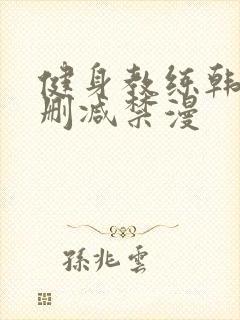 健身教练韩
删减禁漫
孫兆雲